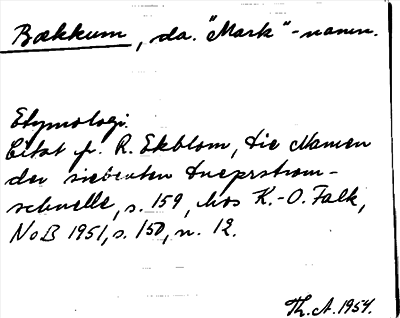 Bækkum, da. "Mark"-navn.
Etymologi.
Citat fr. R. Ekblom, Die Namen
der siebenten Dneprstrom-
schnelle, s. 159, hos K.-O. Falk,
NoB 1951, s. 150, n. 12.
Th. A. 1954.